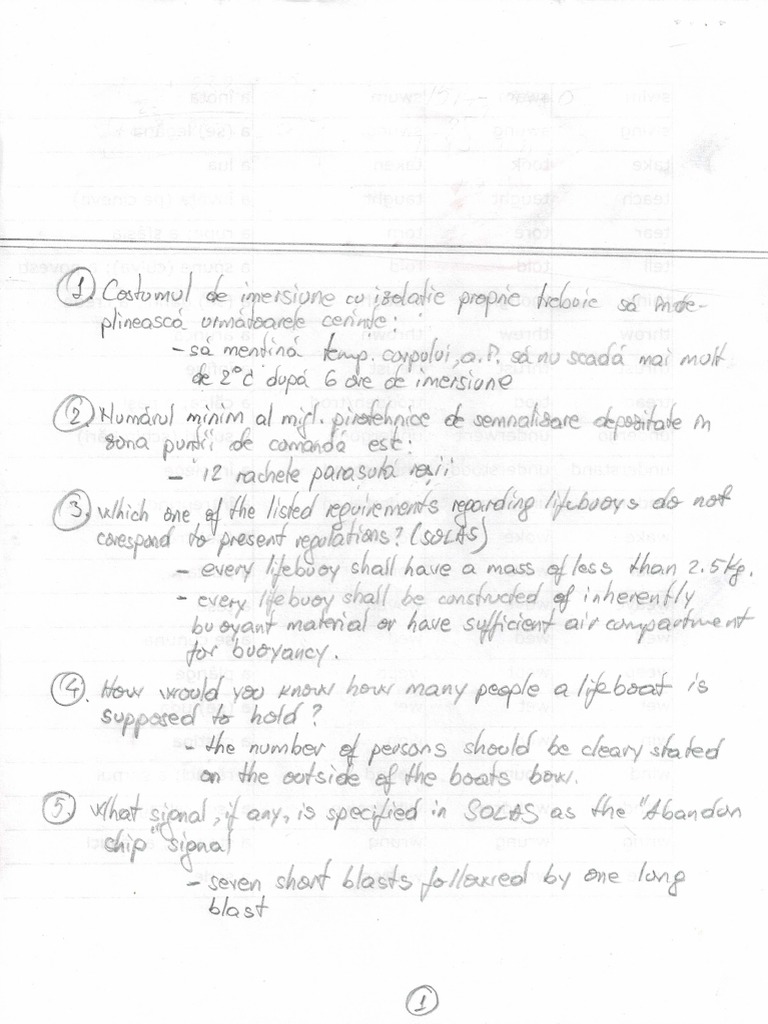 1. Costumul de imersiune cu izolatie proprie trebuie să înde-
plinească următoarele cerințe:
- să mențină temp. corpului, a.î. să nu scadă mai mult
de 2°C după 6 ore de imersiune
2. Numărul minim al mijl. pirotehnice de semnalizare depozitate în
zona punții de comandă est:
- 12 rachele parasută roșii
3. Which one of the listed reguirements regarding lifebuoys do not
corespond to present regulations? (SOLAS)
- every lifebuoy shall have a mass of less than 2.5kg.
- every lifebuoy shall be constructed of inherently
buoyant material or have sufficient air compartment
for buoyancy.
4. How would you know how many people a lifeboat is
supposed to hold?
- the number of persons should be cleary stated
on the outside of the boats bow.
5. What signal, if any, is specified in SOLAS as the "Abandon
ship" signal
- seven short blasts followed by one long
blast
1